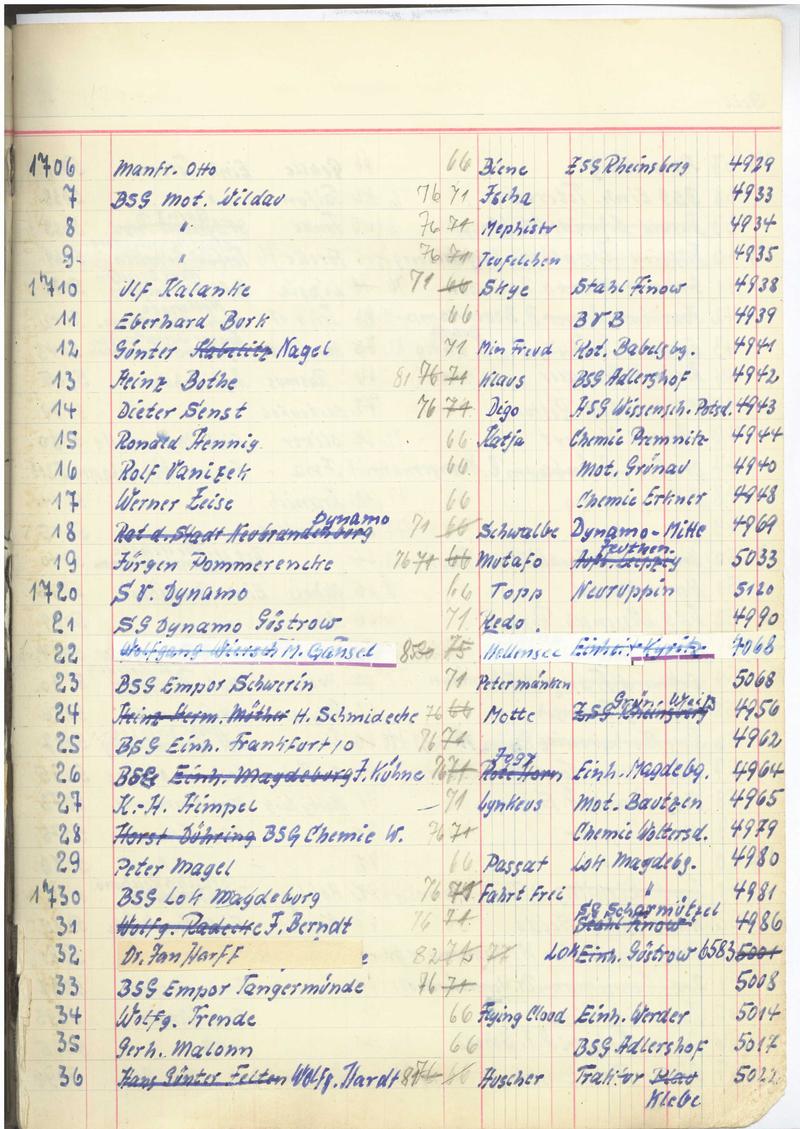 1706 Manfr. Otto 66 Biene ZSG Rheinsberg 4929
7 BSG Mot. Wildau 76 71 Ischa 4933
8 " 76 71 Mephisto 4934
9 " 76 71 Teufelchen 4935
1710 Ulf Kalanke 71 66 Skye Stahl Finow 4938
11 Eberhard Bork 66 BVB 4939
12 Günter Kabelitz Nagel 71 Min Freud Rot. Babelsbg. 4941
13 Heinz Bothe 81 76 71 Klaus BSG Adlershof 4942
14 Dieter Senst 76 71 Digo HSG Wissensch. Potsd. 4943
15 Ronald Hennig 66 Katja Chemie Premnitz 4944
16 Rolf Vanizek 66 Mot. Grünau 4940
17 Werner Zeise 66 Chemie Erkner 4948
Dynamo
18 Rat d. Stadt Neubrandenburg 71 66 Schwalbe Dynamo-Mitte 4969
Zeuthen
19 Jürgen Pommerencke 76 71 66 Mutafo 5033
1720 SV. Dynamo 66 Topp Neuruppin 5120
21 SG Dynamo Güstrow 71 Hedo 4990
22 Wolfgang Wiersch M. Gänsel 75 Mellensee Einheit Kyritz 7068
23 BSG Empor Schwerin 71 Petermänken 5068
Grün-Weiß
24 Heinz-Herm. Möther H. Schmidecke 76 66 Motte ZSG Rheinsberg 4956
25 BSG Einh. Frankfurt/O 76 71 4962
Jogy
26 BSG Einh. Magdeburg F. Kühne 76 71 Rote Horn Einh. Magdebg. 4964
27 K.-H. Himpel – 71 Lynkeus Mot. Bautzen 4965
28 Horst Döhring BSG Chemie W. 76 71 Chemie Woltersd. 4979
29 Peter Magel 66 Passat Lok Magdebg. 4980
1730 BSG Lok Magdeburg 76 71 Fahrt Frei " 4981
SG Scharmützel
31 Wolfg. Radecke F. Berndt 76 71 Stahl Finow 4986
32 Dr. Jan Harff 82 72 77 Lok Einh. Güstrow 6583 5001
33 BSG Empor Tangermünde 76 71 5008
34 Wolfg. Frende 66 Flying Cloud Einh. Werder 5014
35 Gerh. Malonn 66 BSG Adlershof 5017
36 Hans Günter Felten Wolfg. Hardt 76 66 Huscher Traktor 5022
Klebe